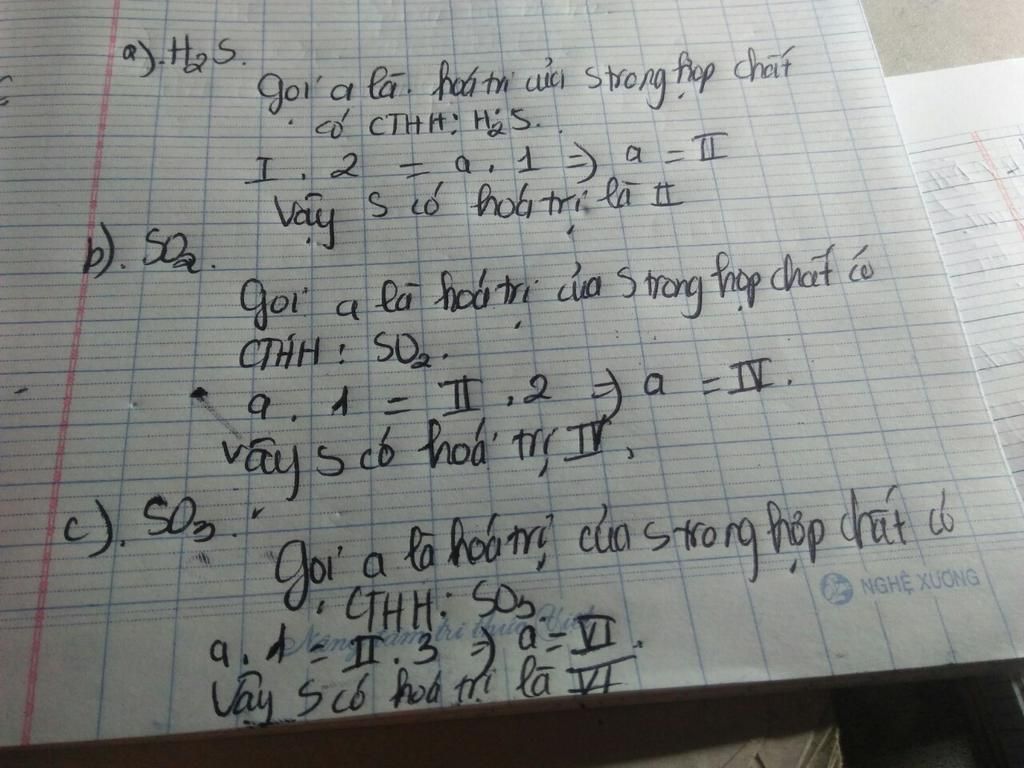 a). H₂S.
gọi a là hoá trị của S trong hợp chất
có CTHH: H₂S.
I . 2 = a . 1 => a = II
Vậy S có hoá trị là II
b). SO₂.
gọi a là hoá trị của S trong hợp chất có
CTHH : SO₂.
a . 1 = II . 2 => a = IV.
Vậy S có hoá trị IV.
c). SO₃.
gọi a là hoá trị của S trong hợp chất có
CTHH: SO₃
NGHỆ XƯƠNG
a . 1 = II . 3 => a = VI.
Vậy S có hoá trị là VI